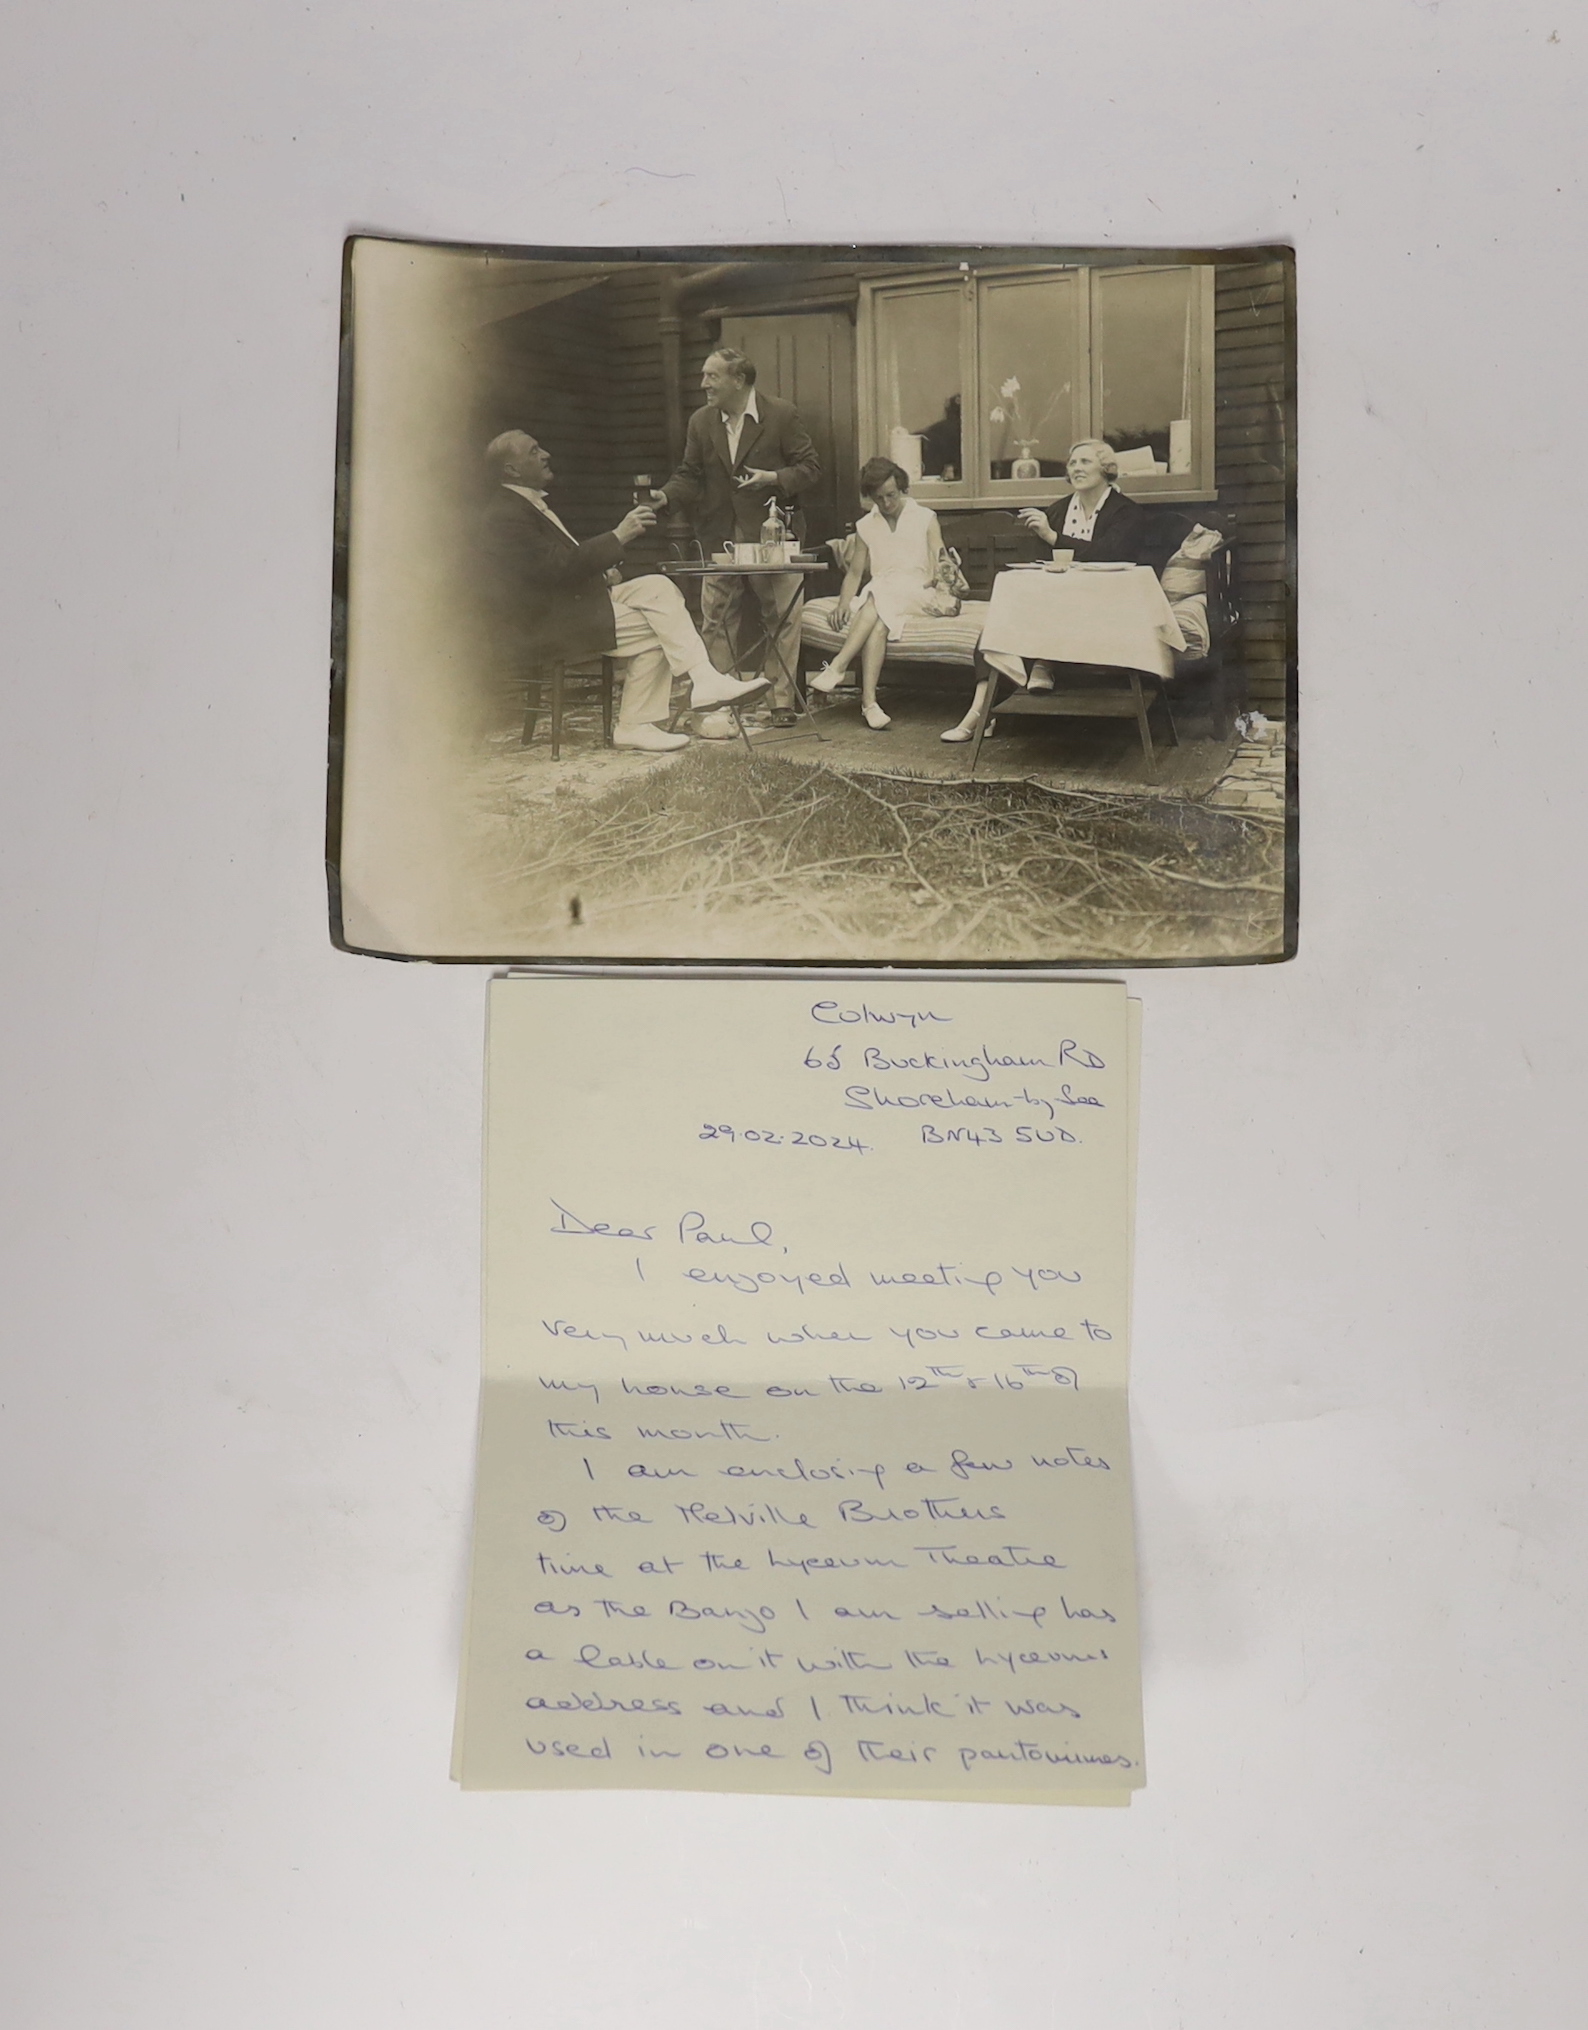 Colwyn
65 Buckingham RD
Shoreham-by-Sea
29.02.2024. BN43 5UD.
Dear Paul,
I enjoyed meeting you
very much when you came to
my house on the 12th & 16th of
this month.
I am enclosing a few notes
of the Melville Brothers
time at the Lyceum Theatre
as the Banjo I am selling has
a lable on it with the Lyceums
address and I think it was
used in one of their pantomimes.